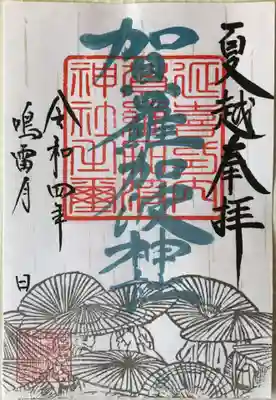 夏越奉拝
賀羅加波神社
延喜式内
神社之璽
令和四年
鳴雷月 日